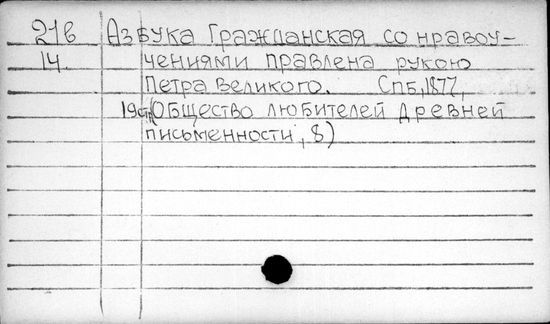 216 Азбука Гражданская со нравоу-
14 чениями правлена рукою
Петра Великого. СПб, 1877,
19 стр. (Общество любителей древней
письменности, 8)